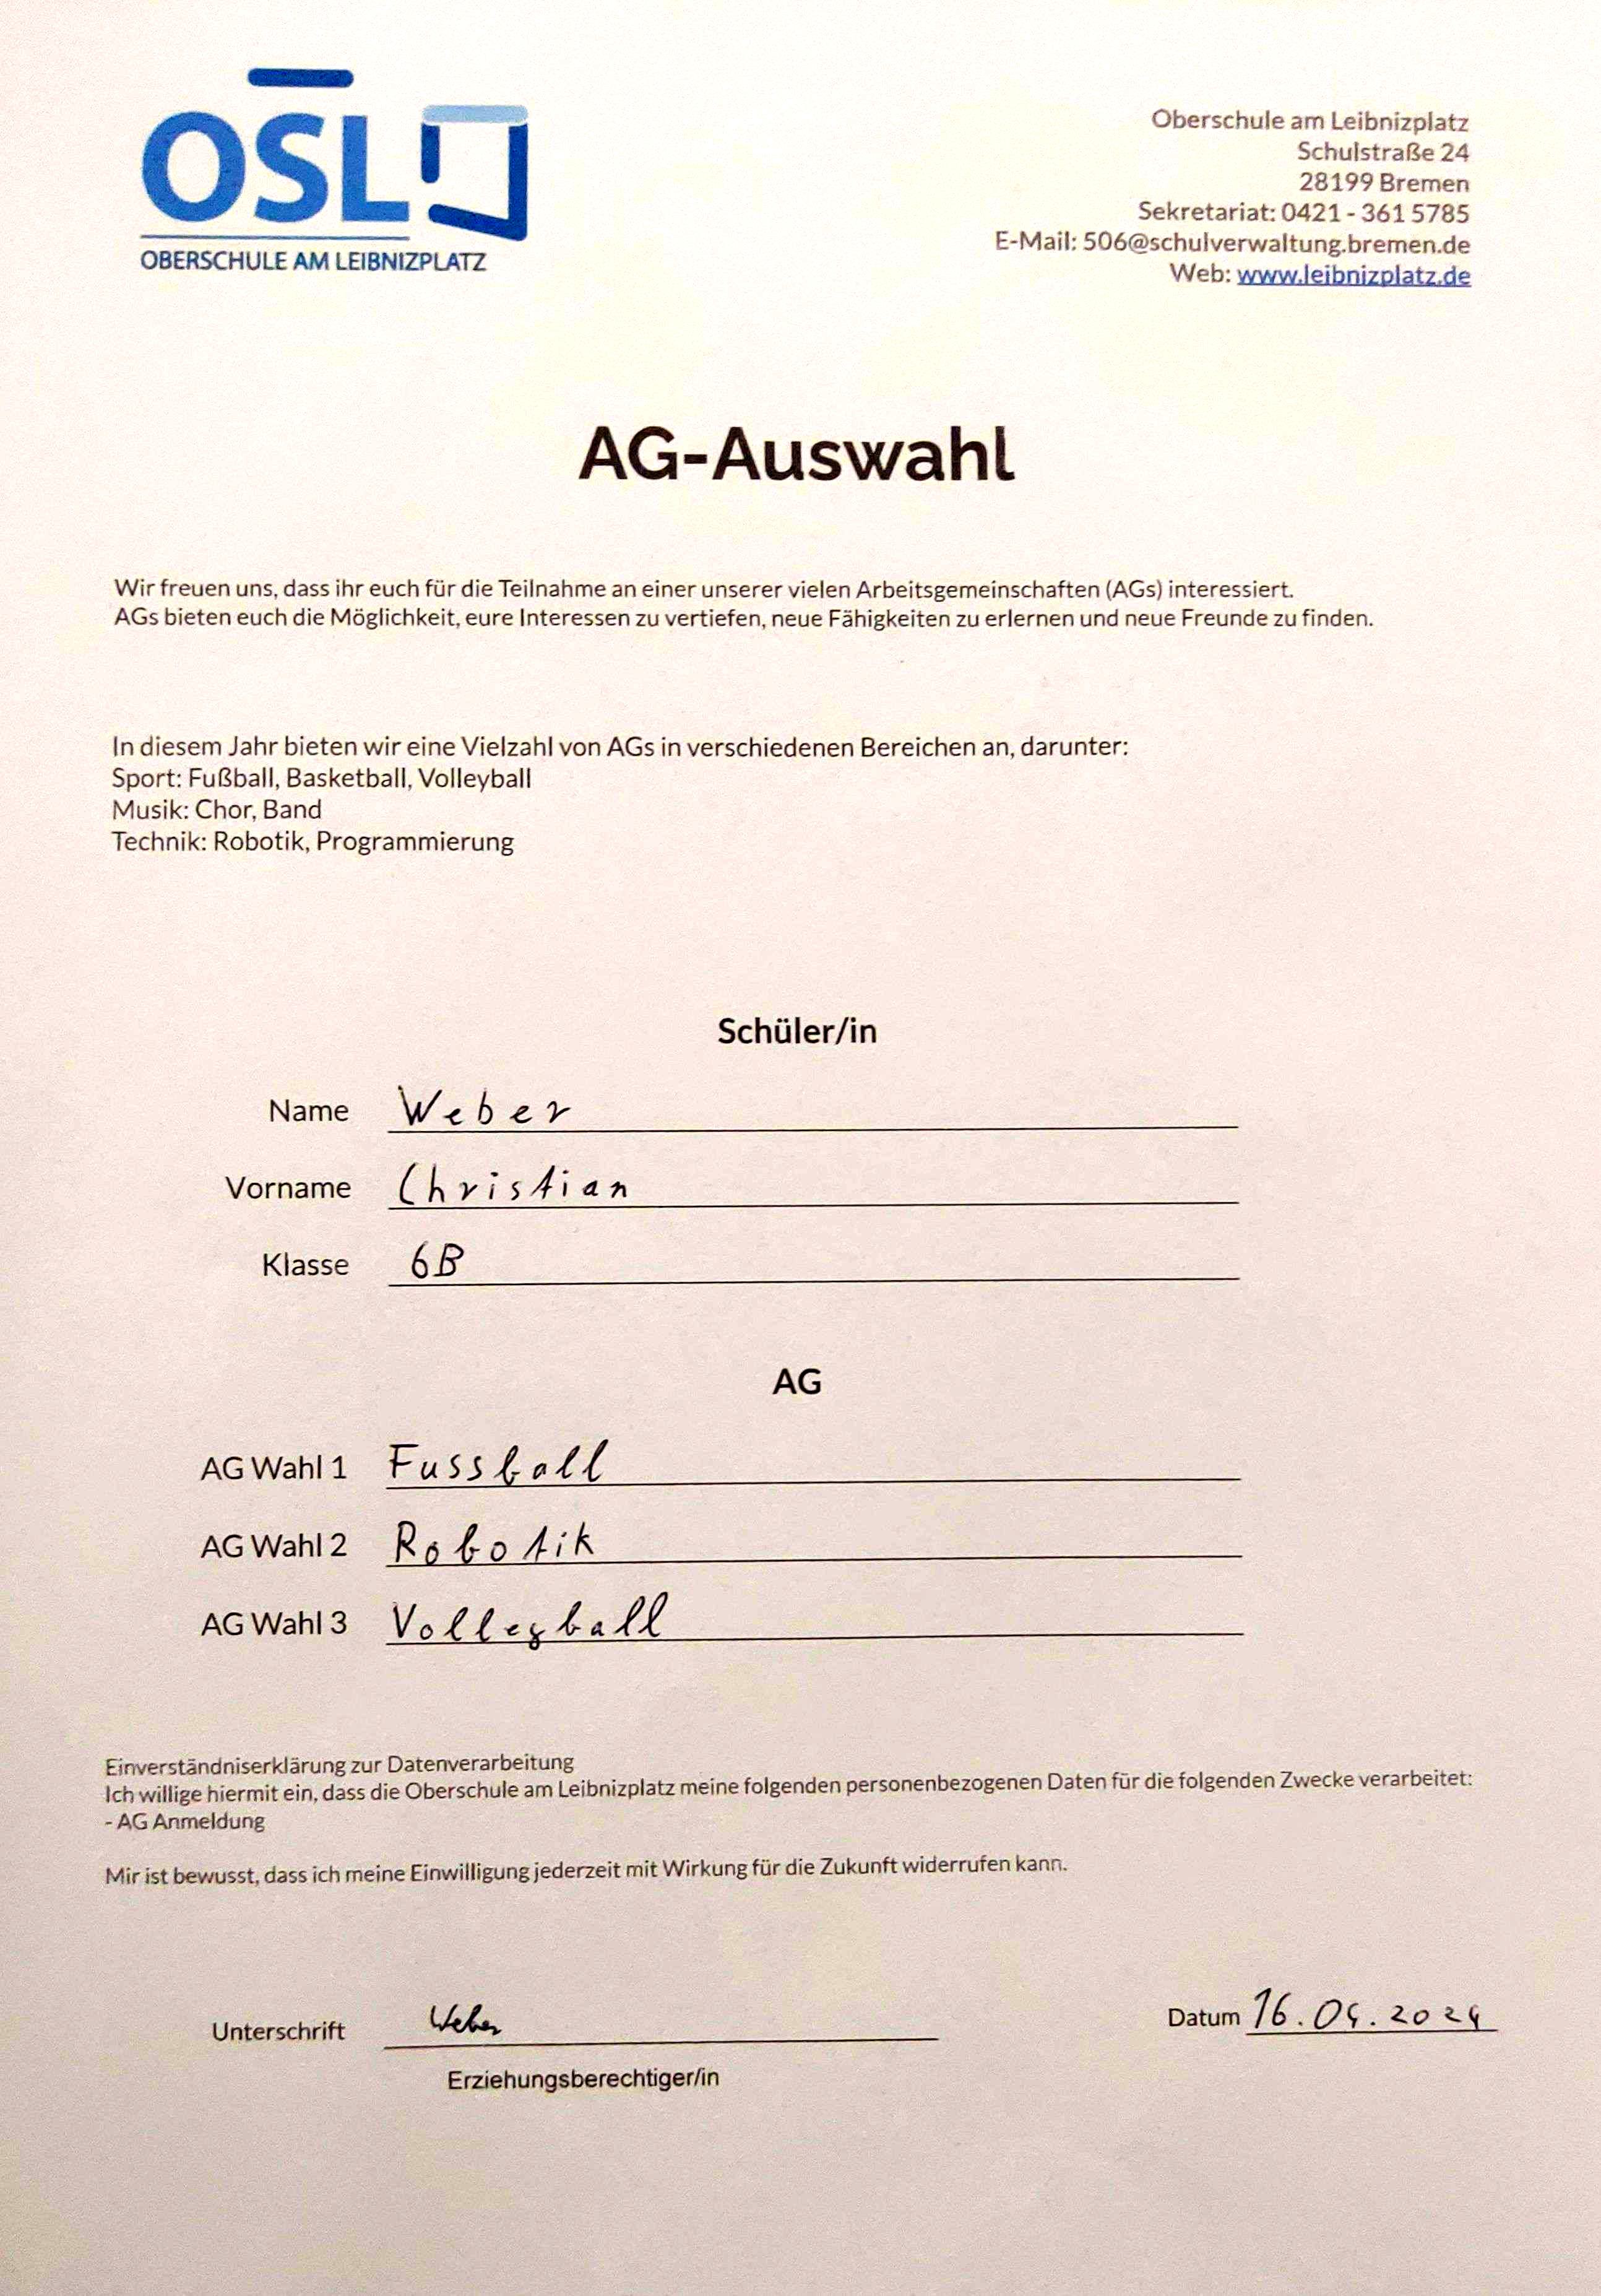 OSL
OBERSCHULE AM LEIBNIZPLATZ
Oberschule am Leibnizplatz
Schulstraße 24
28199 Bremen
Sekretariat: 0421 - 361 5785
E-Mail: 506@schulverwaltung.bremen.de
Web: www.leibnizplatz.de
AG-Auswahl
Wir freuen uns, dass ihr euch für die Teilnahme an einer unserer vielen Arbeitsgemeinschaften (AGs) interessiert.
AGs bieten euch die Möglichkeit, eure Interessen zu vertiefen, neue Fähigkeiten zu erlernen und neue Freunde zu finden.
In diesem Jahr bieten wir eine Vielzahl von AGs in verschiedenen Bereichen an, darunter:
Sport: Fußball, Basketball, Volleyball
Musik: Chor, Band
Technik: Robotik, Programmierung
Schüler/in
Name Weber
Vorname Christian
Klasse 6B
AG
AG Wahl 1 Fussball
AG Wahl 2 Robotik
AG Wahl 3 Volleyball
Einverständniserklärung zur Datenverarbeitung
Ich willige hiermit ein, dass die Oberschule am Leibnizplatz meine folgenden personenbezogenen Daten für die folgenden Zwecke verarbeitet:
- AG Anmeldung
Mir ist bewusst, dass ich meine Einwilligung jederzeit mit Wirkung für die Zukunft widerrufen kann.
Unterschrift Weber Datum 16.04.2024
Erziehungsberechtiger/in